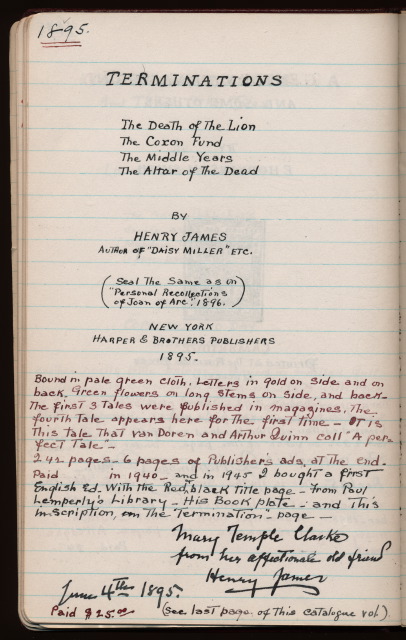 1895.
TERMINATIONS
The Death of The Lion
The Coxon Fund
The Middle Years
The Altar of The Dead
BY
HENRY JAMES
AUTHOR OF "DAISY MILLER" ETC.
(Seal The Same as on
"Personal Recollections
of Joan of Arc". 1896.)
NEW YORK
HARPER & BROTHERS PUBLISHERS
1895.
Bound in pale green cloth. Letters in gold on side and on
back. Green flowers on long stems on side, and back-
The first 3 Tales were published in magazines, The
fourth Tale appears here for the first time - It is
This Tale That van Doren and Arthur Quinn call "A per-
fect Tale"-
242 pages - 6 pages of Publisher's ads, at the end.
Paid in 1940 - and in 1945 I bought a first
English Ed. with the Red, black title page - from Paul
Lemperly's Library - His Book plate - and This
inscription, on The "Termination" page -
Mary Temple Clarke
from her affectionate old friend
Henry James
June 4th 1895.
Paid $25.00 (see last page of This catalogue vol.)